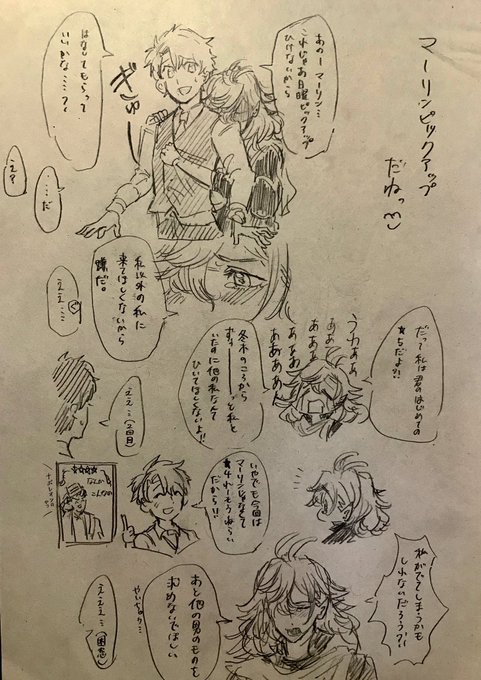 マーリンピックアップ
だねっ
あのーマーリン…
これじゃあ日曜ピックアップ
ひけないから
ぎゅー
はなしてもらって
いいかな……?
……だ
え?
私以外の私に
来てほしくないから
嫌だ。
ええ……
だって私は君のはじめての
★5だよ!!
うわああ
ああ
ああああ
ああああ
ああああん
冬木のころから
ずぅーーっと私と
いたのに他の私なんて
ひいてほしくないよ!!
ええ…(2回目)
いやでも今回は
マーリンじゃなくて
★4れーそうねらい
だから!!
☆☆☆☆
なんか
こんなの
ナポレオンの
やつ
私がでてしまうかも
しれないだろう?!
あと他の男のものを
求めないでほしい
えええ…(困惑)